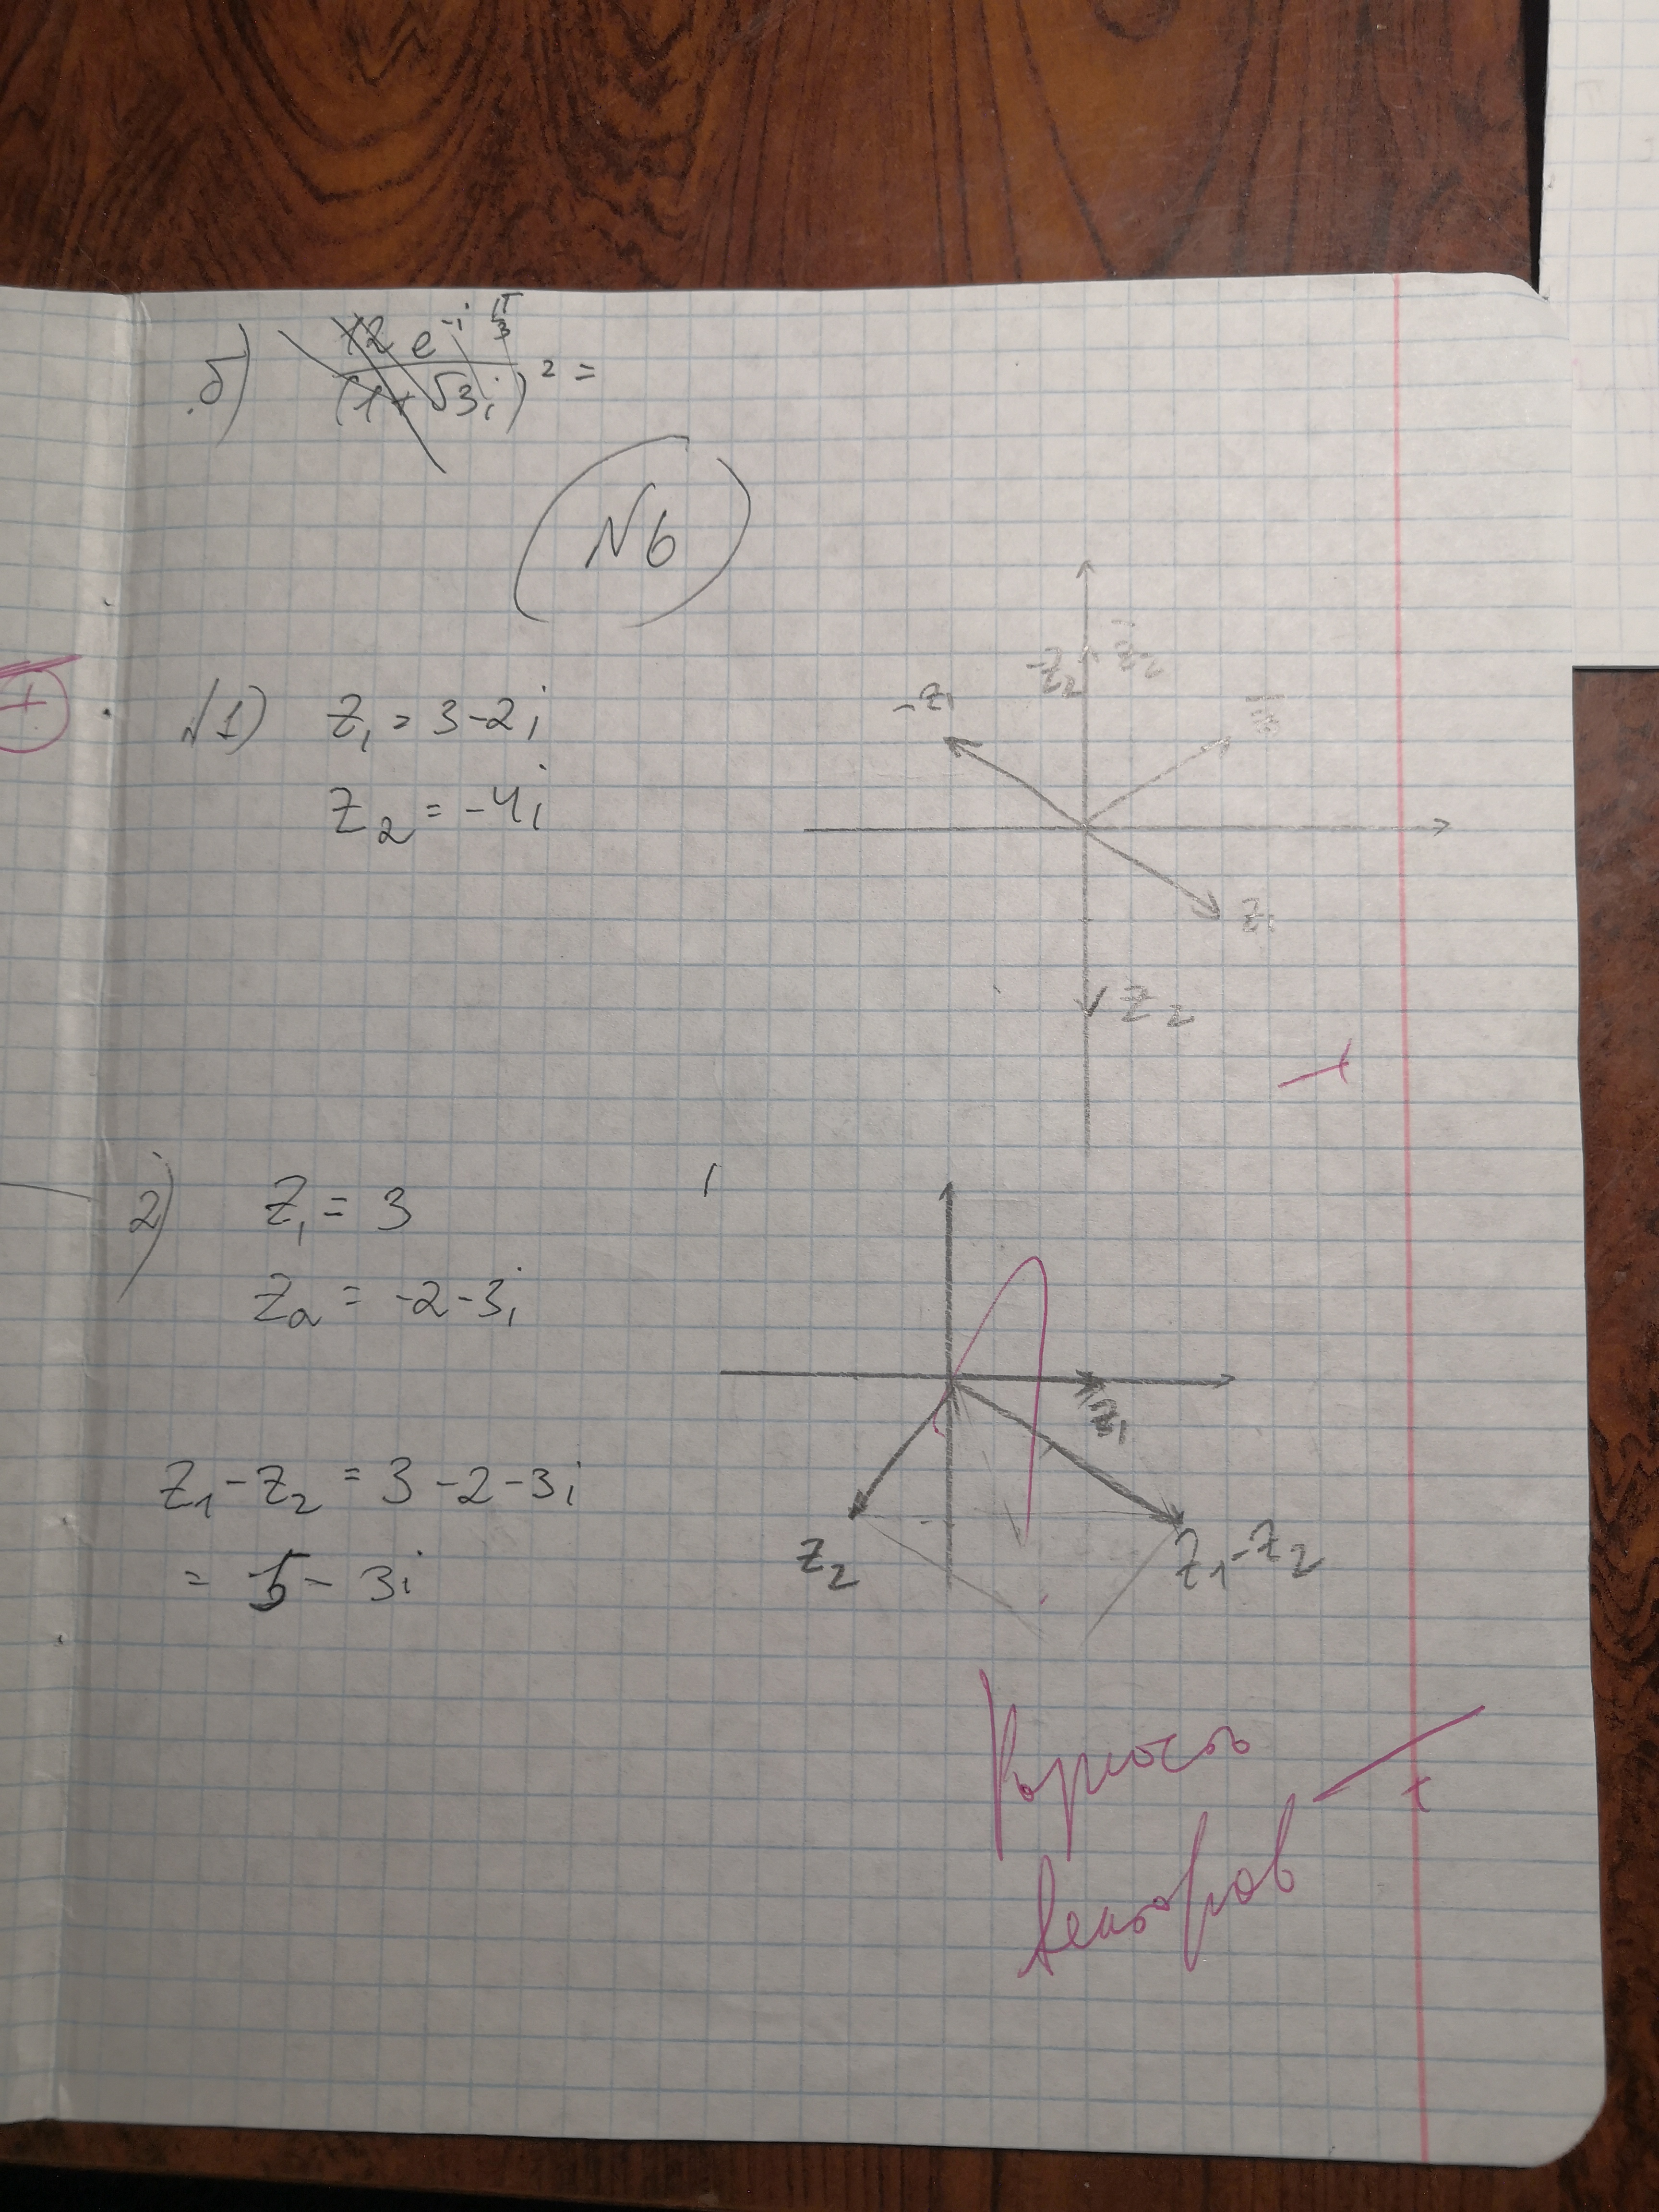 б) 12 e^{-i π/3} / (1+√3i)^2 =
N6
1) z₁ = 3-2i
z₂ = -4i
-z₁
-z₂
z̄₂
z̄₁
z₁
z₂
2) z₁ = 3
z₂ = -2-3i
z₁
z₁-z₂ = 3-2-3i
= 5-3i
z₂
z₁-z₂
векторов